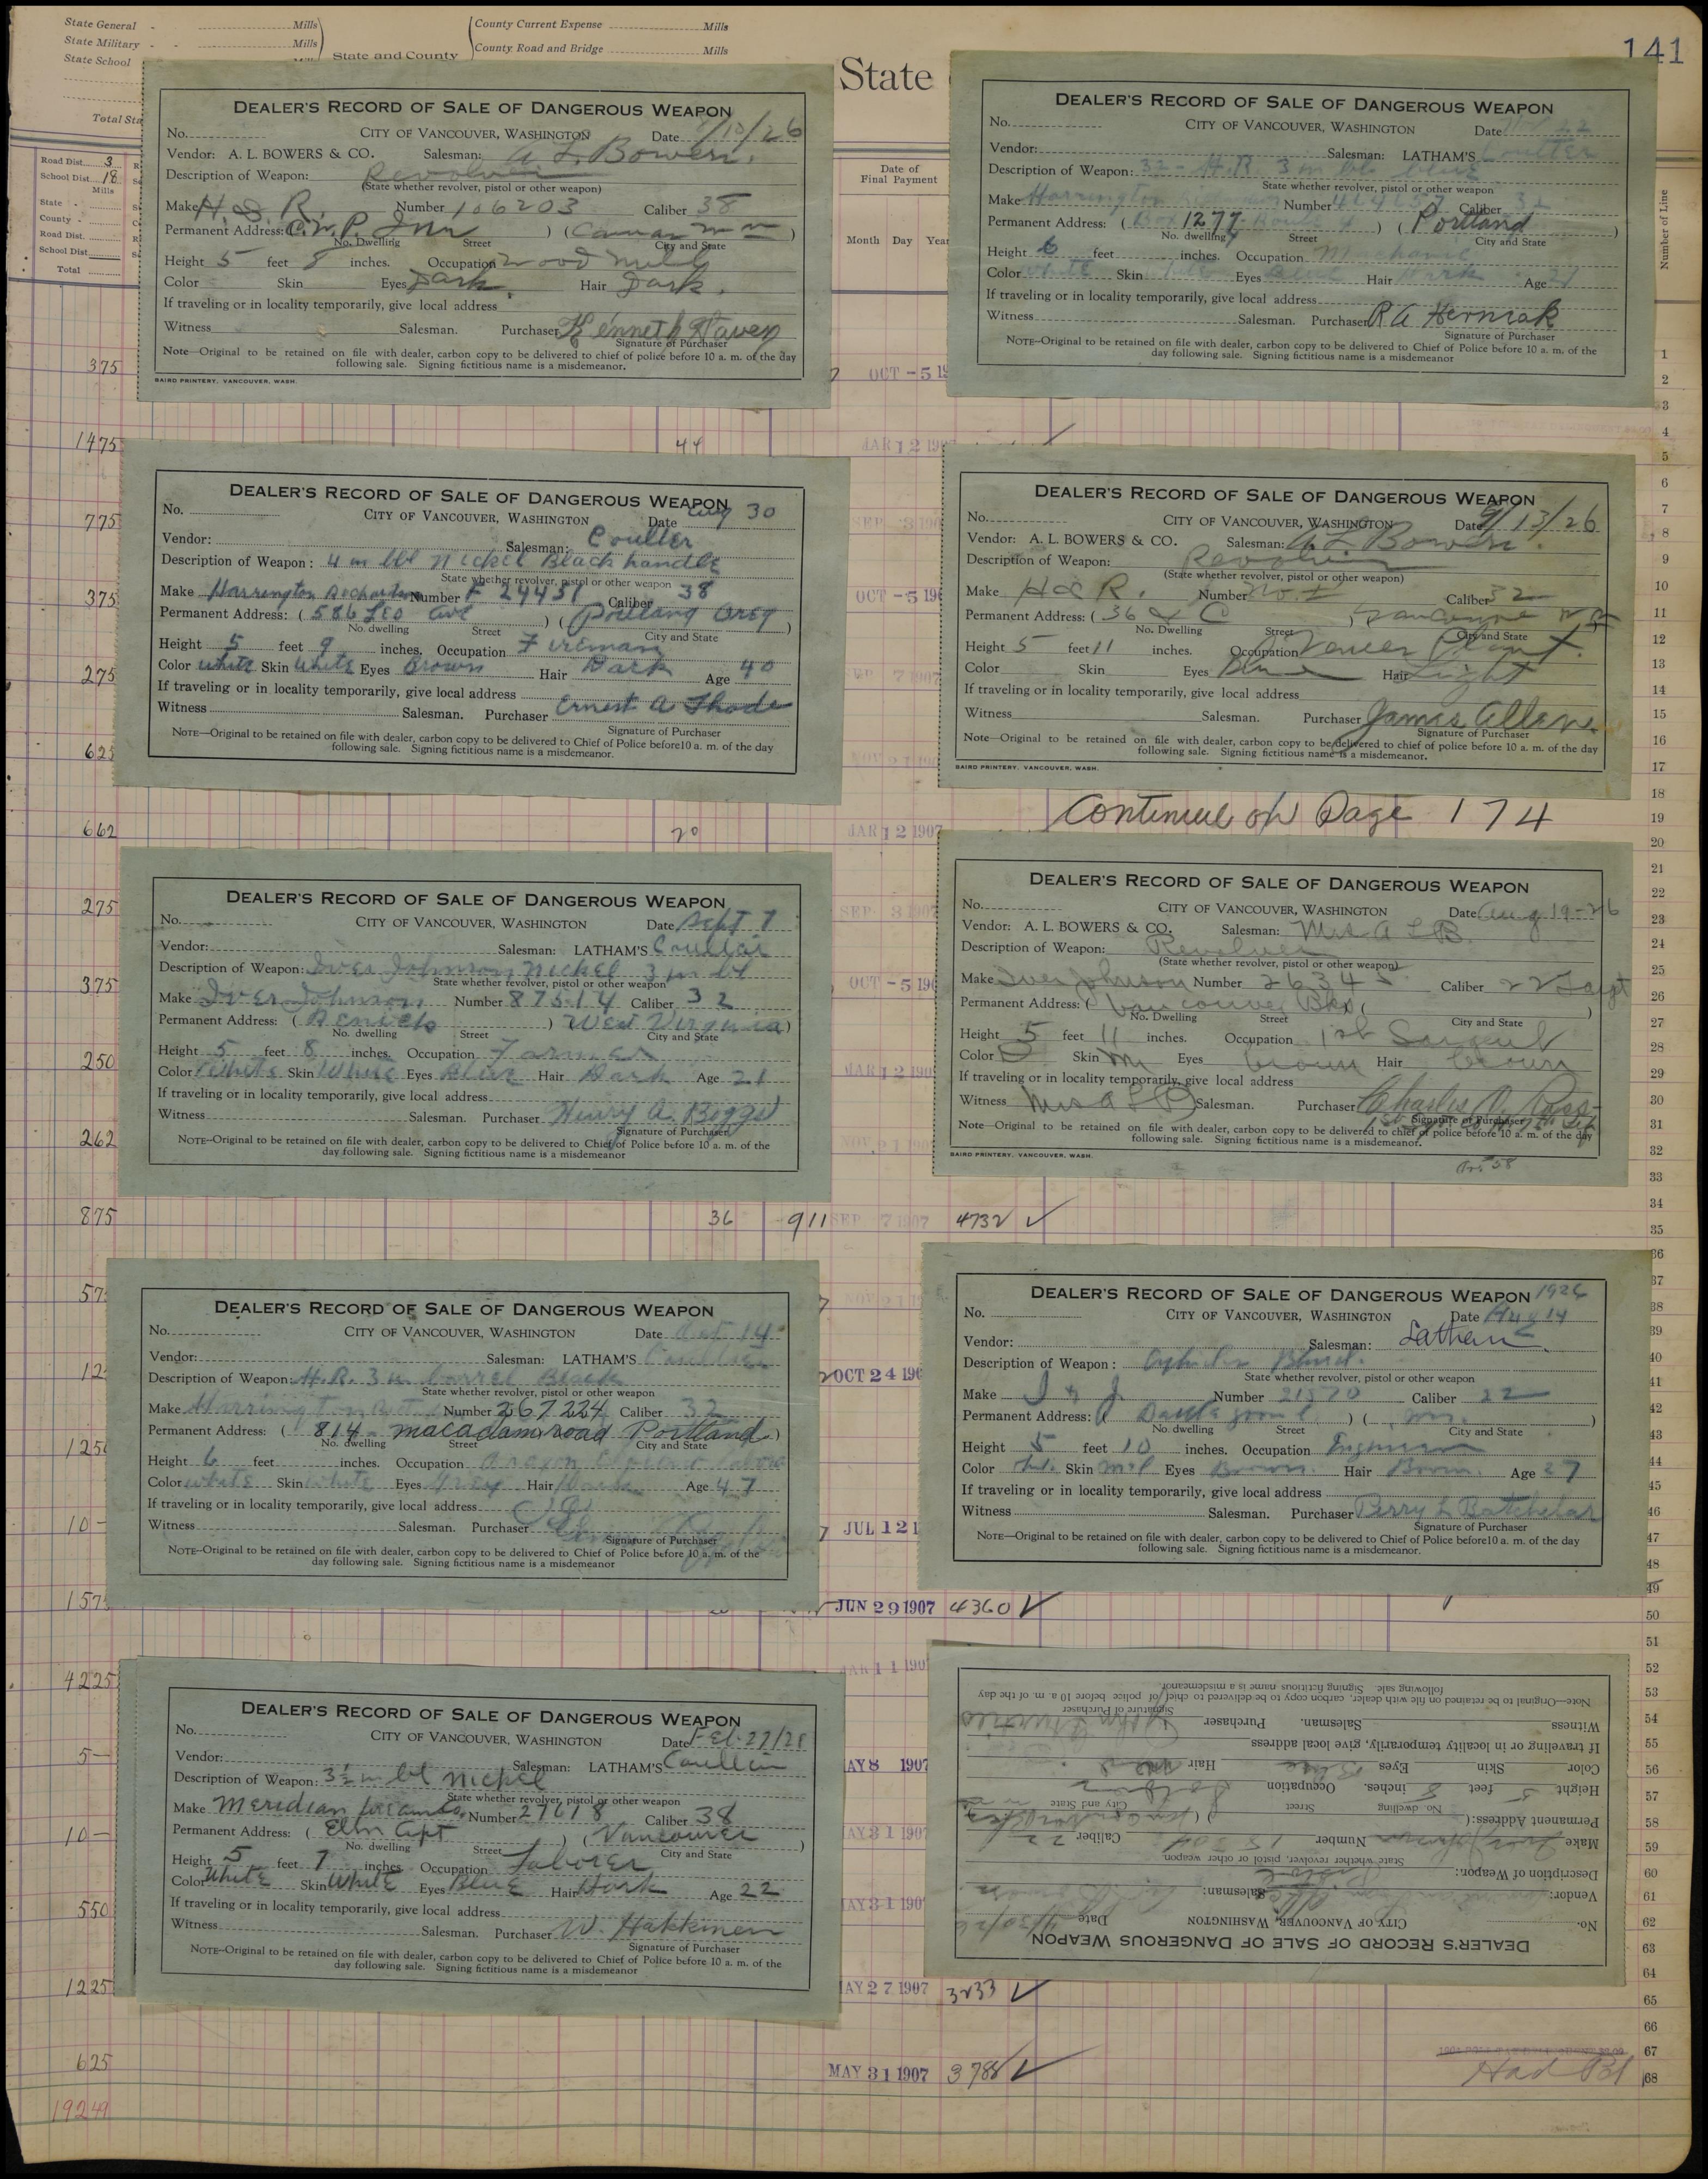 141
State General - Mills
State Military - - Mills
State School
State and County
County Current Expense Mills
County Road and Bridge Mills
State
Total Sta
Road Dist. 3
School Dist. 18
Mills
State -
County -
Road Dist.
School Dist.
Total
Date of
Final Payment
Month Day Year
Number of Line
DEALER'S RECORD OF SALE OF DANGEROUS WEAPON
No. CITY OF VANCOUVER, WASHINGTON Date /10/26
Vendor: A. L. BOWERS & CO. Salesman: A. L. Bowers.
Description of Weapon: Revolver
(State whether revolver, pistol or other weapon)
Make H. & R. Number 106203 Caliber 38
Permanent Address: C.W.P. Inn ) ( Camas Wn )
No. Dwelling Street City and State
Height 5 feet 8 inches. Occupation Wood Mill
Color Skin Eyes Dark. Hair Dark.
If traveling or in locality temporarily, give local address
Witness Salesman. Purchaser Kenneth Haven
Signature of Purchaser
Note—Original to be retained on file with dealer, carbon copy to be delivered to chief of police before 10 a. m. of the day
following sale. Signing fictitious name is a misdemeanor.
BAIRD PRINTERY, VANCOUVER, WASH.
DEALER'S RECORD OF SALE OF DANGEROUS WEAPON
No. CITY OF VANCOUVER, WASHINGTON Date 22
Vendor: Salesman: LATHAM'S Coulter
Description of Weapon: 32 - H.R. 3 in bbl blue
State whether revolver, pistol or other weapon
Make Harrington Number Caliber 32
Permanent Address: ( Box 1277 Route 4 ) ( Portland )
No. dwelling Street City and State
Height 6 feet inches. Occupation Mechanic
Color White Skin Eyes Blue Hair Dark Age
If traveling or in locality temporarily, give local address
Witness Salesman. Purchaser R A Herniak
Signature of Purchaser
NOTE—Original to be retained on file with dealer, carbon copy to be delivered to Chief of Police before 10 a. m. of the
day following sale. Signing fictitious name is a misdemeanor
375 OCT -5 19
1475 44 JAR 12 190
DEALER'S RECORD OF SALE OF DANGEROUS WEAPON
No. CITY OF VANCOUVER, WASHINGTON Date Aug 30
Vendor: Salesman: Coulter
Description of Weapon: 4 in bbl Nickel Black handle
State whether revolver, pistol or other weapon
Make Harrington Richardson Number F 24451 Caliber 38
Permanent Address: ( 586 Leo Ave ) ( Portland Oreg )
No. dwelling Street City and State
Height 5 feet 9 inches. Occupation Fireman
Color White Skin White Eyes Brown Hair Dark Age 40
If traveling or in locality temporarily, give local address
Witness Salesman. Purchaser Ernest A Thode
Signature of Purchaser
NOTE—Original to be retained on file with dealer, carbon copy to be delivered to Chief of Police before10 a. m. of the day
following sale. Signing fictitious name is a misdemeanor.
DEALER'S RECORD OF SALE OF DANGEROUS WEAPON
No. CITY OF VANCOUVER, WASHINGTON Date 9/13/26
Vendor: A. L. BOWERS & CO. Salesman: A L Bowers.
Description of Weapon: Revolver
(State whether revolver, pistol or other weapon)
Make H & R. Number Caliber 32
Permanent Address: ( 36 & C ) Vancouver Wn
No. Dwelling Street City and State
Height 5 feet 11 inches. Occupation Veneer Plant.
Color Skin Eyes Blue Hair Light
If traveling or in locality temporarily, give local address
Witness Salesman. Purchaser James Allen
Signature of Purchaser
Note—Original to be retained on file with dealer, carbon copy to be delivered to chief of police before 10 a. m. of the day
following sale. Signing fictitious name is a misdemeanor.
BAIRD PRINTERY, VANCOUVER, WASH.
775 SEP -3 190
375 OCT -5 190
275 SEP 7 1907
625 NOV 21 190
Continue on Page 174
662 20 JAR 12 1907
DEALER'S RECORD OF SALE OF DANGEROUS WEAPON
No. CITY OF VANCOUVER, WASHINGTON Date Sept 7
Vendor: Salesman: LATHAM'S
Description of Weapon: Iver Johnson Nickel 3 in bl
State whether revolver, pistol or other weapon
Make Iver Johnson Number 87514 Caliber 32
Permanent Address: ( ) West Virginia )
No. dwelling Street City and State
Height 5 feet 8 inches. Occupation Farmer
Color White Skin White Eyes Blue Hair Dark Age 21
If traveling or in locality temporarily, give local address
Witness Salesman. Purchaser Henry A. Boggs
Signature of Purchaser
NOTE—Original to be retained on file with dealer, carbon copy to be delivered to Chief of Police before 10 a. m. of the
day following sale. Signing fictitious name is a misdemeanor
DEALER'S RECORD OF SALE OF DANGEROUS WEAPON
No. CITY OF VANCOUVER, WASHINGTON Date Aug 19-26
Vendor: A. L. BOWERS & CO. Salesman: Mrs A L B.
Description of Weapon: Revolver
(State whether revolver, pistol or other weapon)
Make Iver Johnson Number 26345 Caliber 22
Permanent Address: ( Vancouver Bks (
No. Dwelling Street City and State
Height 5 feet 11 inches. Occupation 1st Sargent
Color Skin Eyes brown Hair brown
If traveling or in locality temporarily, give local address
Witness Mrs A L B Salesman. Purchaser Charles
Signature of Purchaser
Note—Original to be retained on file with dealer, carbon copy to be delivered to chief of police before 10 a. m. of the day
following sale. Signing fictitious name is a misdemeanor.
BAIRD PRINTERY, VANCOUVER, WASH.
275 SEP -3 1907
375 OCT -5 190
250 MAR 12 190
262 NOV 21 190
875 36 911 SEP 7 1907 4732 ✓
DEALER'S RECORD OF SALE OF DANGEROUS WEAPON
No. CITY OF VANCOUVER, WASHINGTON Date Oct 14
Vendor: Salesman: LATHAM'S
Description of Weapon: H.R. 3 in barrel Black
State whether revolver, pistol or other weapon
Make Harrington Number 267224 Caliber 32
Permanent Address: ( 814 - macadam road Portland )
No. dwelling Street City and State
Height 6 feet inches. Occupation
Color White Skin White Eyes Grey Hair Age 47
If traveling or in locality temporarily, give local address
Witness Salesman. Purchaser
Signature of Purchaser
NOTE—Original to be retained on file with dealer, carbon copy to be delivered to Chief of Police before 10 a. m. of the
day following sale. Signing fictitious name is a misdemeanor
DEALER'S RECORD OF SALE OF DANGEROUS WEAPON 1926
No. CITY OF VANCOUVER, WASHINGTON Date Aug 14
Vendor: Salesman: Latham
Description of Weapon:
State whether revolver, pistol or other weapon
Make I & J Number 21570 Caliber 22
Permanent Address: ( ) ( )
No. dwelling Street City and State
Height 5 feet 10 inches. Occupation Engineer
Color Skin Eyes Brown. Hair Brown. Age 27
If traveling or in locality temporarily, give local address
Witness Salesman. Purchaser Perry L Batchelar
Signature of Purchaser
NOTE—Original to be retained on file with dealer, carbon copy to be delivered to Chief of Police before10 a. m. of the day
following sale. Signing fictitious name is a misdemeanor.
575 NOV 21
12 OCT 24 190
1250
10 - JUL 12 1
1575 JUN 29 1907 4360 ✓
4225 MAR 11 190
DEALER'S RECORD OF SALE OF DANGEROUS WEAPON
No. CITY OF VANCOUVER, WASHINGTON Date Feb. 27/28
Vendor: Salesman: LATHAM'S
Description of Weapon: 3½ in bl Nickel
State whether revolver, pistol or other weapon
Make Meridian Firearms Co. Number 27618 Caliber 38
Permanent Address: ( Elm Apt ) ( Vancouver )
No. dwelling Street City and State
Height 5 feet 7 inches. Occupation Laborer
Color White Skin White Eyes Blue Hair Dark Age 22
If traveling or in locality temporarily, give local address
Witness Salesman. Purchaser W. Hakkinen
Signature of Purchaser
NOTE—Original to be retained on file with dealer, carbon copy to be delivered to Chief of Police before 10 a. m. of the
day following sale. Signing fictitious name is a misdemeanor
DEALER'S RECORD OF SALE OF DANGEROUS WEAPON
No. CITY OF VANCOUVER, WASHINGTON Date /30/26
Vendor: Salesman:
Description of Weapon: Pistol
State whether revolver, pistol or other weapon
Make Iver Johnson Number Caliber 22
Permanent Address: ( ) ( Vancouver
No. dwelling Street City and State
Height 5 feet 8 inches. Occupation Soldier
Color Skin Eyes Blue Hair
If traveling or in locality temporarily, give local address
Witness Salesman. Purchaser
Signature of Purchaser
Note—Original to be retained on file with dealer, carbon copy to be delivered to chief of police before 10 a. m. of the day
following sale. Signing fictitious name is a misdemeanor.
5— MAY 8 1907
10— MAY 31 190
550 MAY 31 190
1225 MAY 27 1907 3233 ✓
625 MAY 31 1907 3788 ✓
Had Bl
19249
1
2
3
4
5
6
7
8
9
10
11
12
13
14
15
16
17
18
19
20
21
22
23
24
25
26
27
28
29
30
31
32
33
34
35
36
37
38
39
40
41
42
43
44
45
46
47
48
49
50
51
52
53
54
55
56
57
58
59
60
61
62
63
64
65
66
67
68